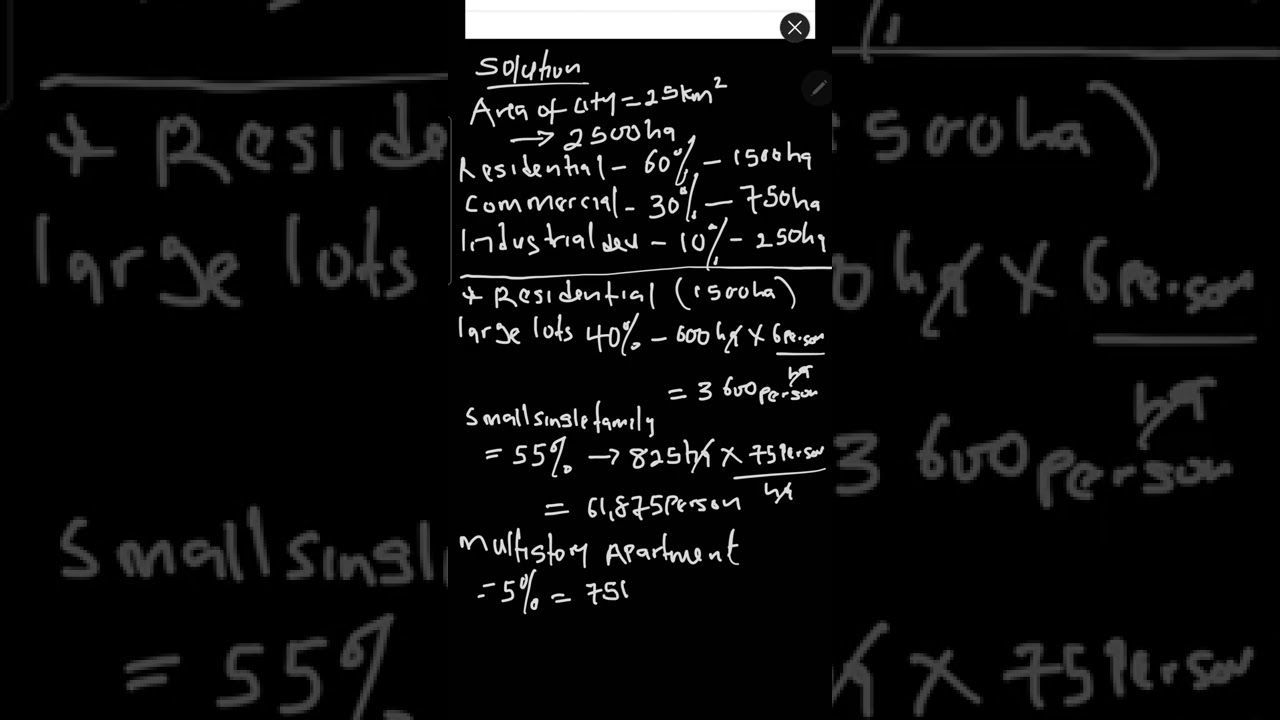 Solution
Area of city = 25km²
→ 2500ha
Residential - 60% - 1500ha
Commercial - 30% - 750ha
Industrial dev - 10% - 250ha
* Residential (1500ha)
large lots 40% - 600 ha x 6person
ha
= 3600person
Small single family
= 55% → 825ha x 75person
ha
= 61,875person
Multistory Apartment
= 5% = 75